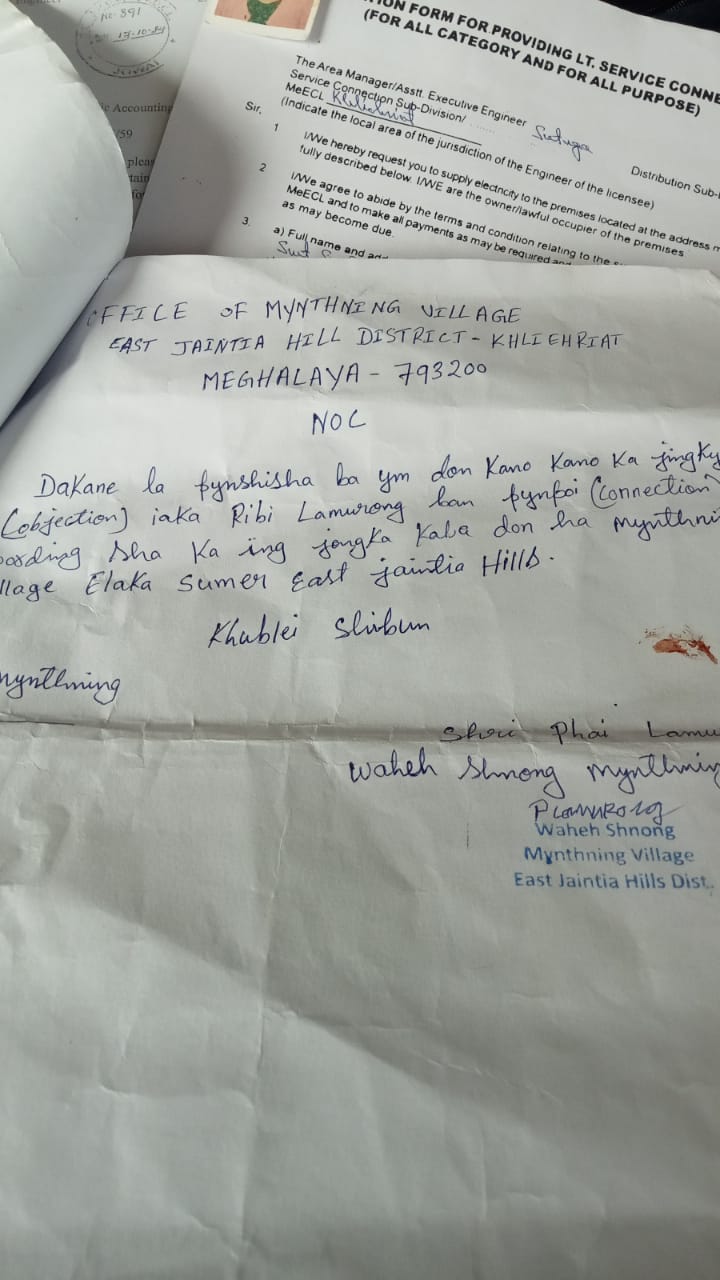 No. 891
13-10-
JOWAI
ic Accounting
/59
pleas
tain
fo
ION FORM FOR PROVIDING LT. SERVICE CONNE
(FOR ALL CATEGORY AND FOR ALL PURPOSE)
The Area Manager/Asstt. Executive Engineer
Service Connection Sub-Division/ ........ Distribution Sub-
MeECL Khliehriat
(Indicate the local area of the jurisdiction of the Engineer of the licensee)
Sir,
1 I/We hereby request you to supply electricity to the premises located at the address m
fully described below. I/WE are the owner/lawful occupier of the premises
2 I/We agree to abide by the terms and condition relating to the
MeECL and to make all payments as may be required and
as may become due.
3. a) Full name and add
Smt
OFFICE OF MYNTHNING VILLAGE
EAST JAINTIA HILL DISTRICT - KHLIEHRIAT
MEGHALAYA - 793200
NOC
Dakane la pynshisha ba ym don Kano Kano Ka jingky
(objection) iaka Ribi Lamurong ban pynpoi (Connection)
oarding sha Ka ing jongka Kaba don ha mynthni
llage Elaka Sumer East jaintia Hills.
Khublei Shibun
mynthning
Shri Phai Lamu
Waheh Shnong mynthnin
PLamurong
Waheh Shnong
Mynthning Village
East Jaintia Hills Dist.